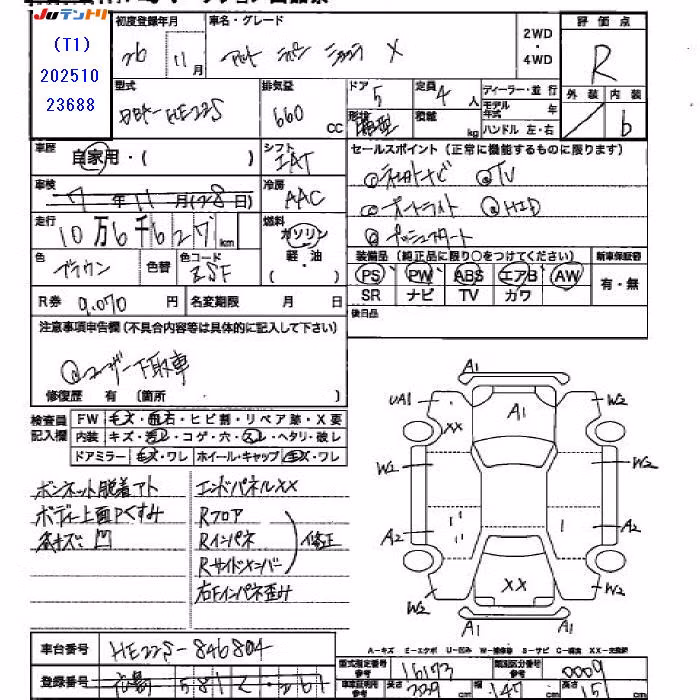 Juテントリ
(T1)
202510
23688
初度登録年月
26 11月
車名・グレード
X
2WD
・
4WD
評価点
R
外装 内装
b
型式
DBA-HE22S
排気量
660 CC
ドア
5
形状
定員
4人
積載
kg
ディーラー・並行
モデル年式 年
ハンドル 左・右
車歴
自家用・( )
シフト
IAT
セールスポイント(正常に機能するものに限ります)
ナビ TV
オートライト HID
プッシュスタート
車検
7年11月(28日)
冷房
AAC
走行
10万6千627km
燃料
ガソリン
軽・油
( )
色
ブラウン
色替
色コード
ZSF
装備品(純正品に限り○をつけてください)
新車保証書
PS PW ABS エアB AW
SR ナビ TV カワ
有・無
R券 9,070円
名変期限 月 日
後日品
注意事項申告欄(不具合内容等は具体的に記入して下さい)
ユーザー下取車
修復歴 有 〔箇所 〕
検査員記入欄
FW キズ・飛石・ヒビ割・リペア跡・X要
内装 キズ・汚レ・コゲ・穴・スレ・ヘタリ・破レ
ドアミラー キズ・ワレ ホイール・キャップ キズ・ワレ
ボンネット脱着アト
ボディー上面Pくすみ
凹
エンドパネルXX
Rフロア
Rインパネ
Rサイドメンバー
修正
右Fインパネ歪み
A1
UA1
XX
A1
W2
W1
W2
A2
A2
XX
W2
W2
A1
A1
A-キズ E-エクボ U-凹み W-補修跡 S-サビ C-腐食 XX-交換済
車台番号
HE22S-846804
登録番号
型式指定番号
参考
16173
類別区分番号
参考
0009
長さ
339
cm
幅
147
cm
高さ
cm